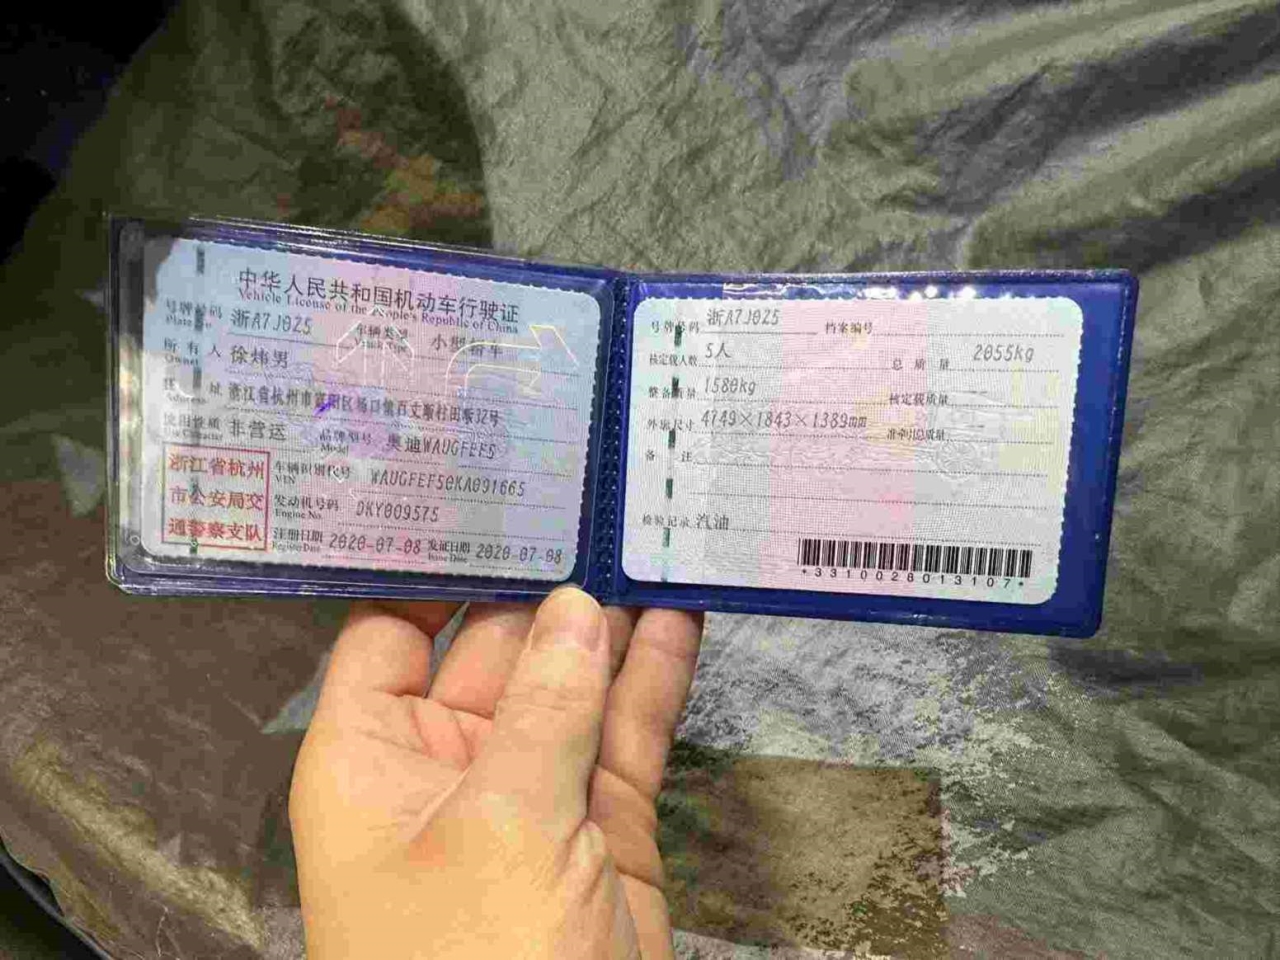 中华人民共和国机动车行驶证
Vehicle License of the People's Republic of China
号牌号码 浙A7J0Z5 车辆类型 小型轿车
Plate No. Vehicle Type
所有人 徐炜男
Owner
住址 浙江省杭州市富阳区场口镇百丈畈村田畈32号
Address
使用性质 非营运 品牌型号 奥迪WAUGFEF5
Use Character Model
浙江省杭州
市公安局交
通警察支队
车辆识别代号 WAUGFEF50KA091665
VIN
发动机号码 DKY009575
Engine No.
注册日期 2020-07-08 发证日期 2020-07-08
Register Date Issue Date
号牌号码 浙A7J0Z5 档案编号
核定载人数 5人 总质量 2055kg
整备质量 1580kg 核定载质量 --
外廓尺寸 4749×1843×1389mm 准牵引总质量 --
备注
检验记录 汽油
*3310028013107*